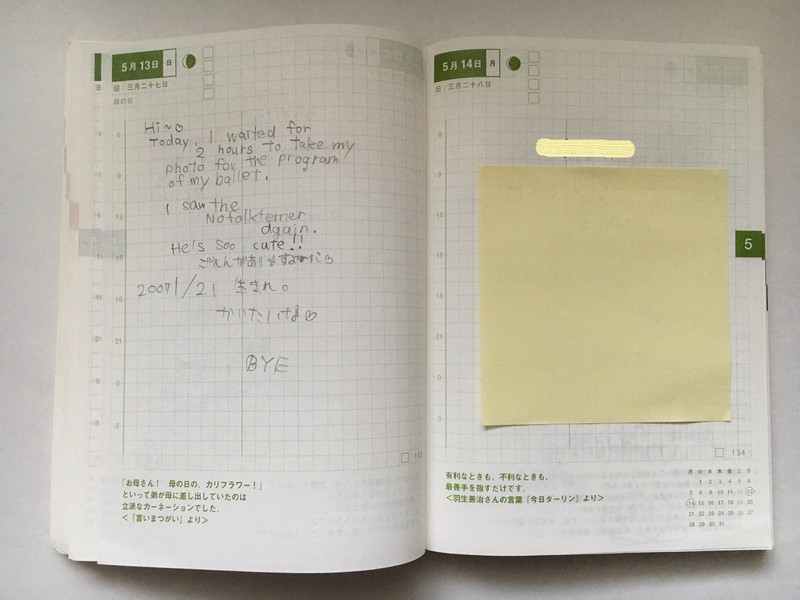 5月13日 日
旧：三月二十七日
母の日
Hi~♡
Today, I waited for
2 hours to take my
photo for the program
of my ballet.
I saw the
Nofolkterrier
again.
He's soo cute!!
2007/1/21 生まれ。
かいたいけな♡
BYE
「お母さん！ 母の日の、カリフラワー！」
といって弟が母に差し出していたのは
立派なカーネーションでした。
＜『言いまつがい』より＞
5月14日 月
旧：三月二十八日
5
134
有利なときも、不利なときも、
最善手を指すだけです。
＜羽生善治さんの言葉『今日ダーリン』より＞
月 火 水 木 金 土 日
1 2 3 4 5 6
7 8 9 10 11 12 13
14 15 16 17 18 19 20
21 22 23 24 25 26 27
28 29 30 31